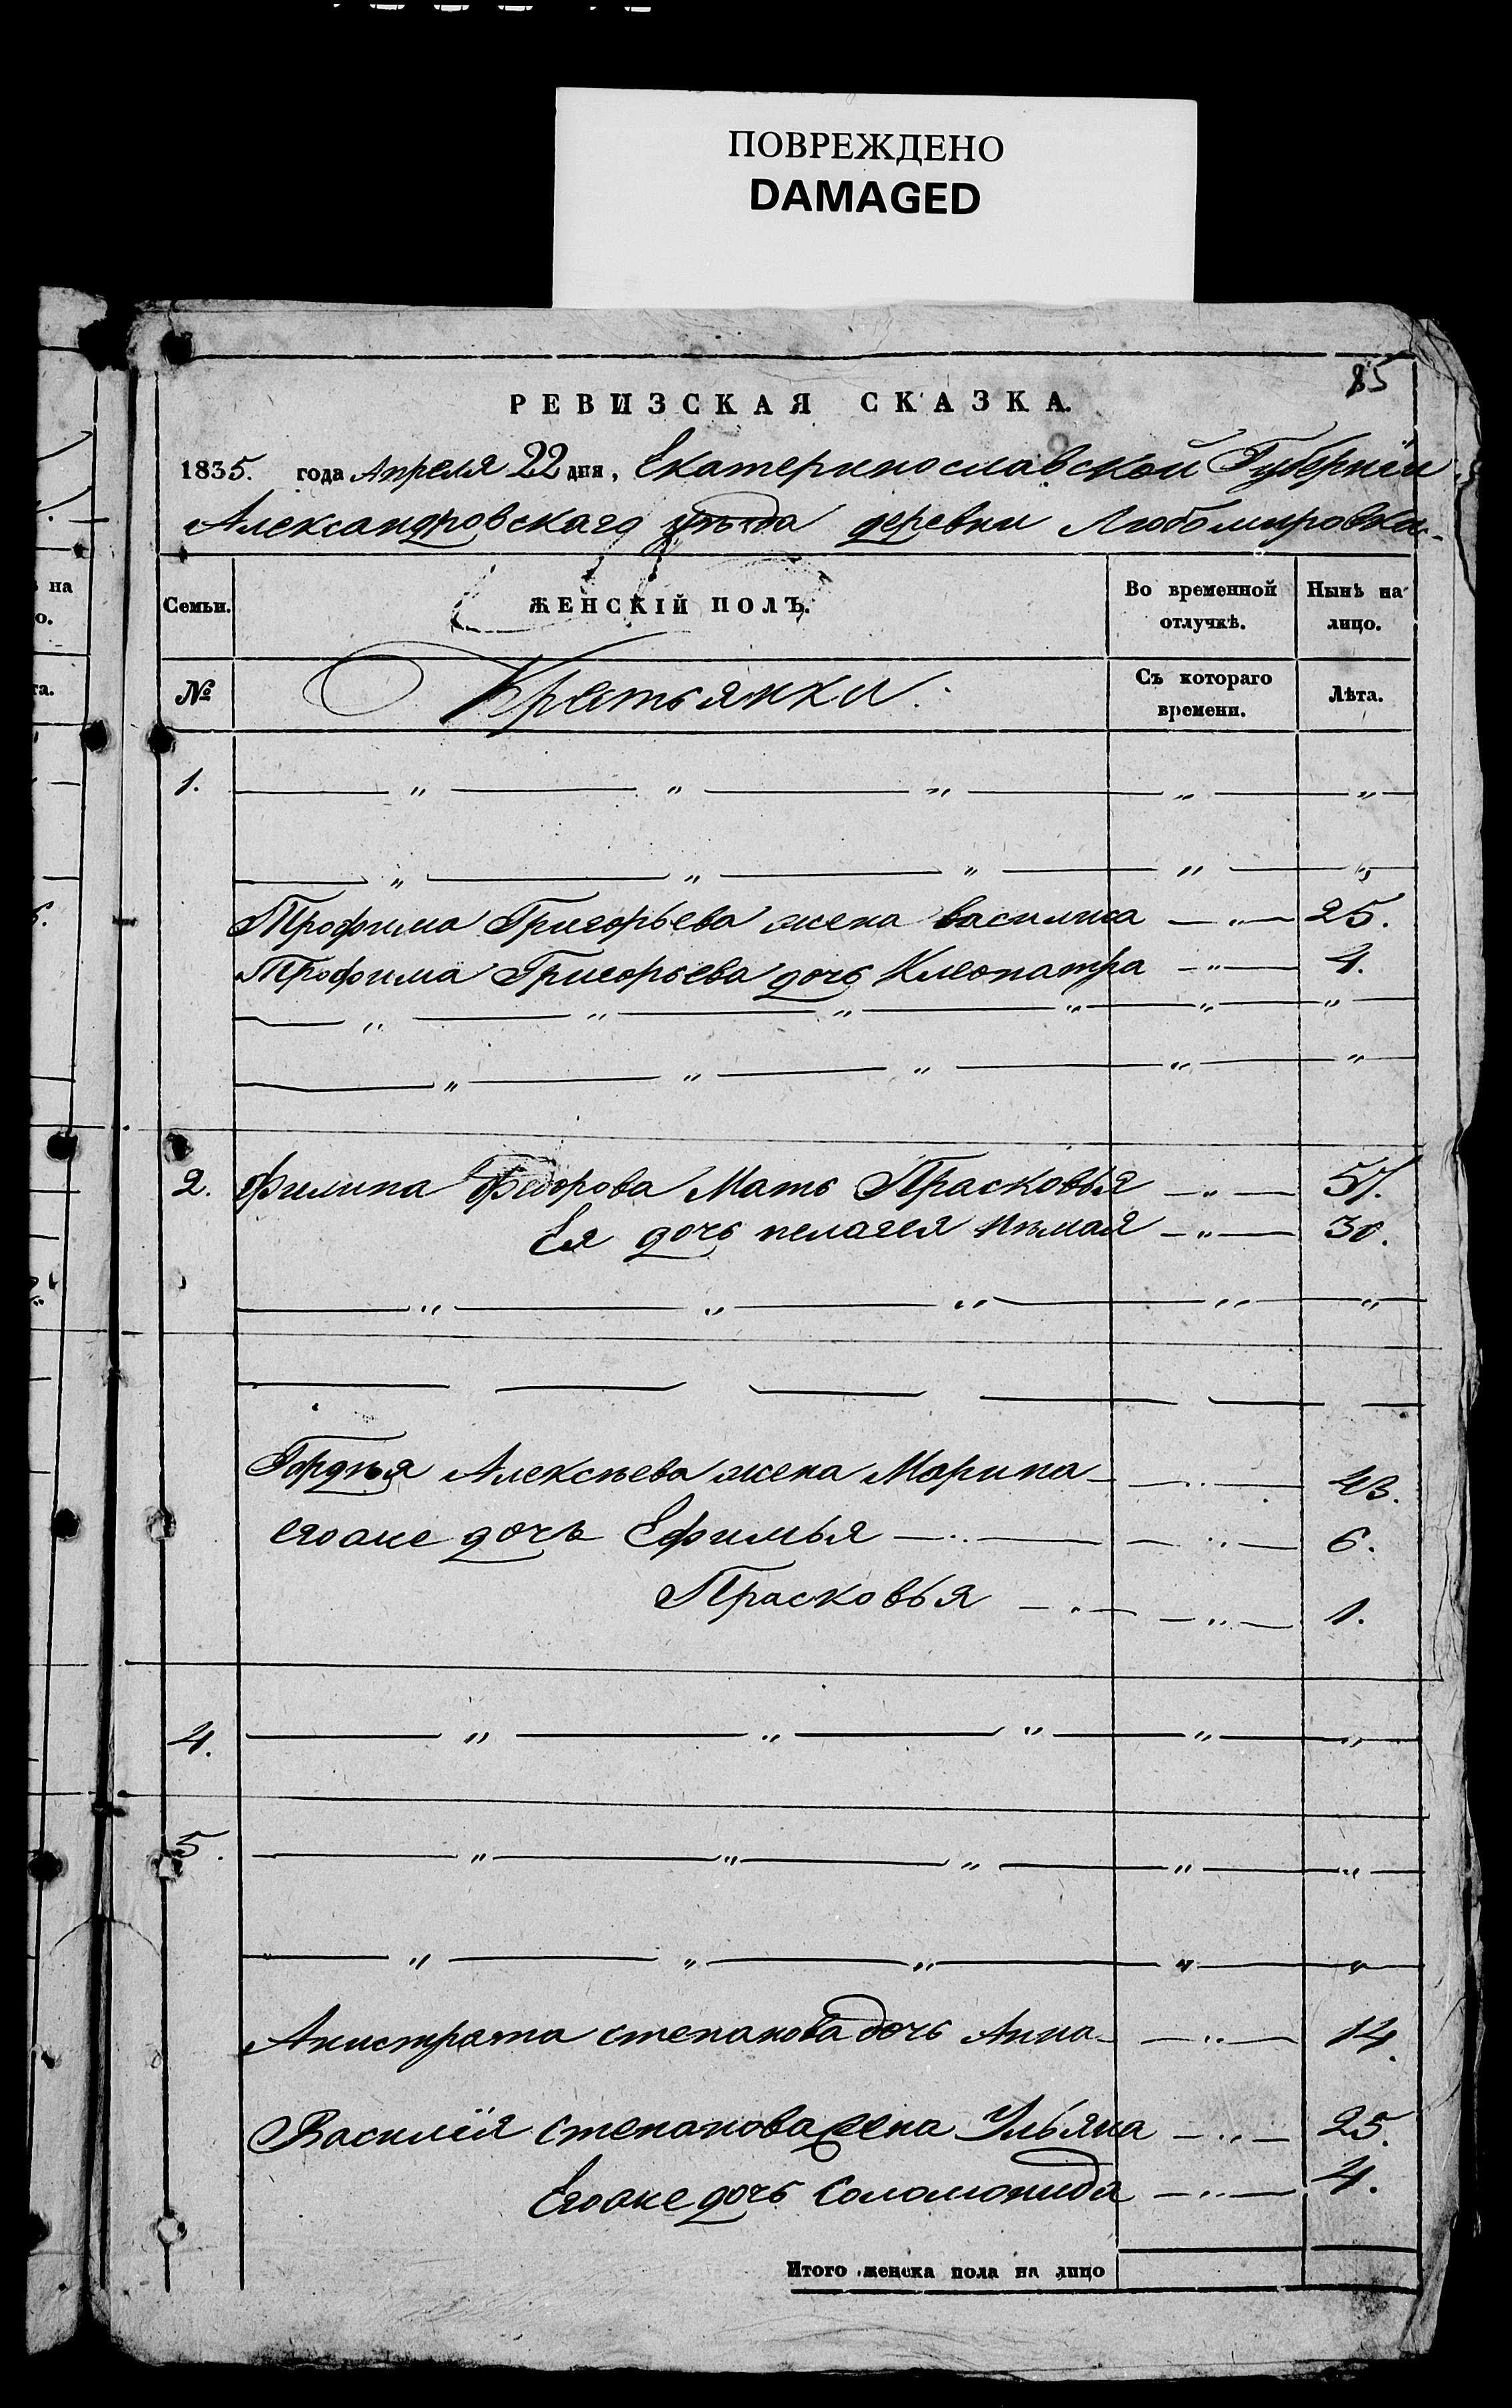 ПОВРЕЖДЕНО
DAMAGED
85
РЕВИЗСКАЯ СКАЗКА.
1835. года Апреля 22 дня, Екатеринославской Губерніи
Александровскаго уѣзда деревни Любомировки
Семьи. ЖЕНСКІЙ ПОЛЪ. Во временной отлучкѣ. Нынѣ на лицо.
№ Крестьянки. Съ котораго времени. Лѣта.
1. „ „ „ „ „
„ „ „ „ „
Трофима Григорьева жена василиса — „ — 25.
Трофима Григорьева дочь Клеопатра — „ — 4.
„ „ „ „ „ „
„ „ „ „ „
2. Филипа Федорова Мать Прасковья — „ — 57.
Ея дочь пелагея нѣмая — „ — 30.
„ „ „ „ „
Гордѣя Алексѣева жена Марина — „ — 43.
егоже дочь Ефимья — „ — — „ — 6.
Прасковья — „ — — „ — 1.
4. „ „ „ „ „
5. „ „ „ „ „
„ „ „ „ „
Анистрата степанова дочь Анна — „ — 14.
Василія степанова жена Ульяна — „ — 25.
Егоже дочь Соломонида — „ — 4.
Итого женска пола на лицо